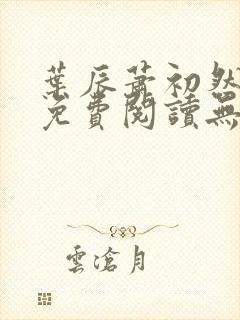 葉辰蕭初然
免費閱讀無
雲滄月